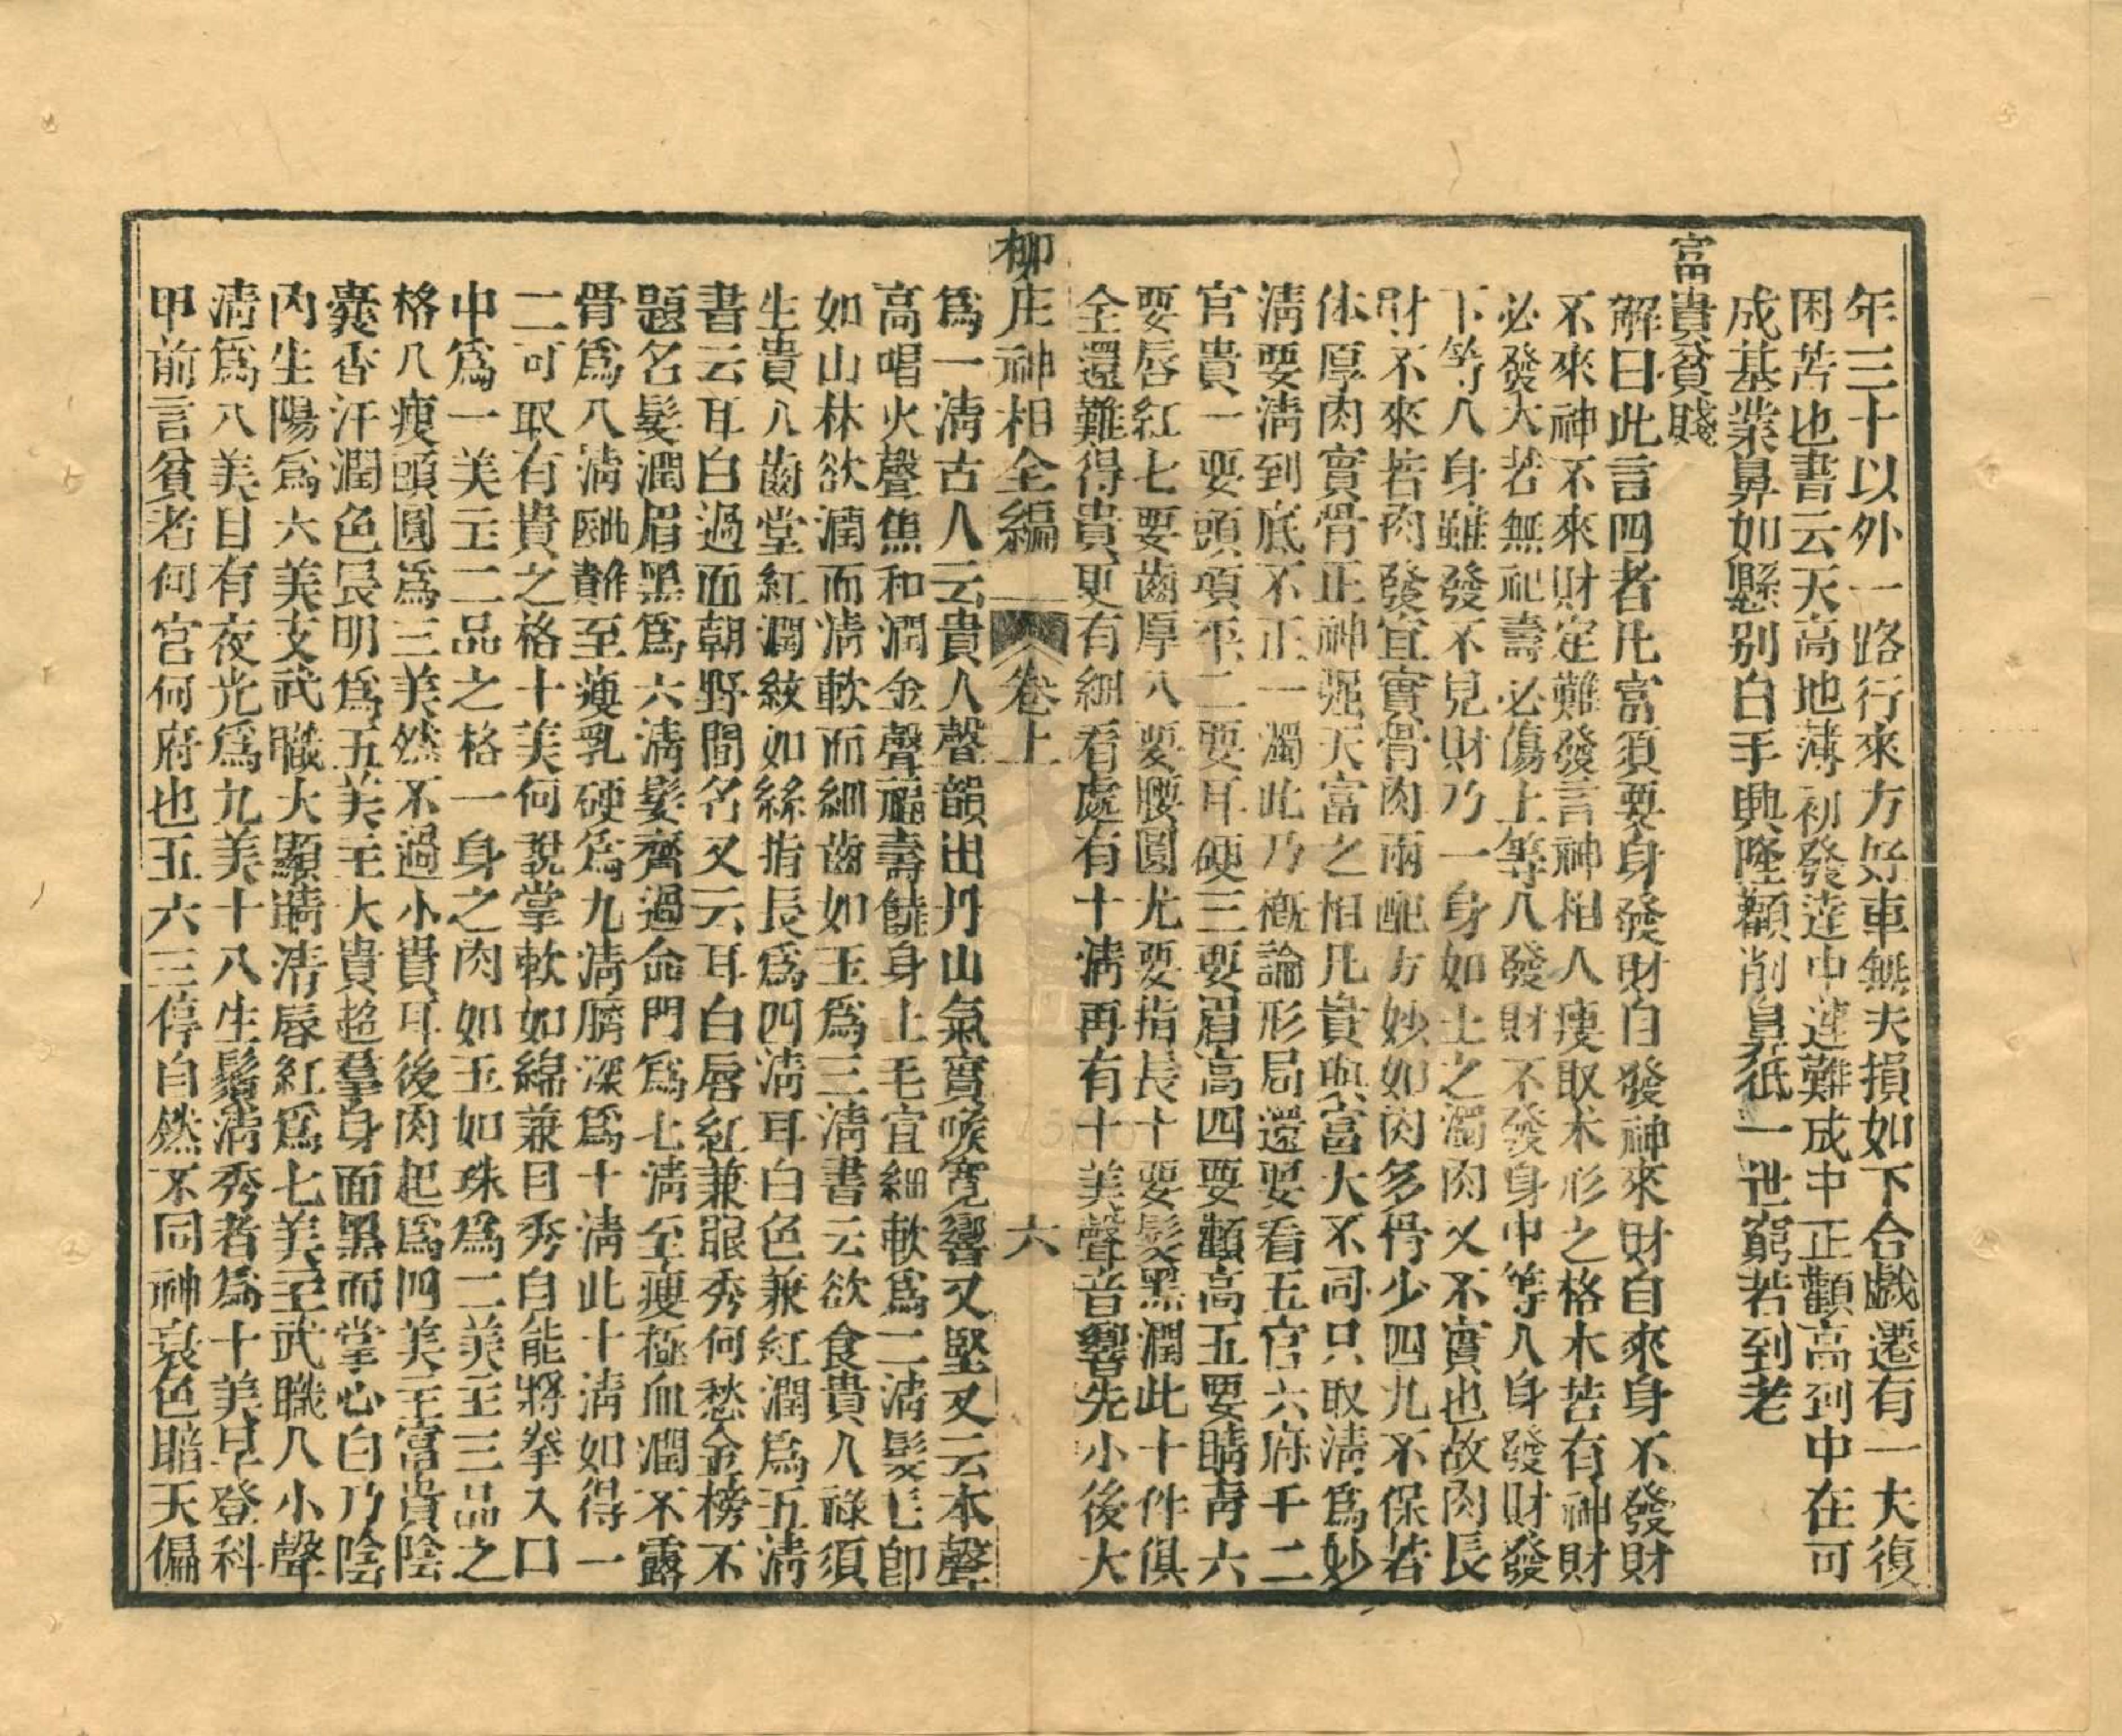 年三十以外一路行來方好車無夫損如下合戲遷有一大復
困苦也書云天高地薄初發達中蓮難成中正顴高到中在可
成基業鼻如懸別白手興隆顴削鼻低一世窮若到老
富貴貧賤
解曰此言四者凡富須要身發財自發神來財自來身不發財
不來神不來財定難發言神相人瘦取木形之格木苦有神財
必發大若無祀壽必傷上等人發財不發身中等人身發財發
下等人身雖發不見財乃一身如土之濁肉又不實也故肉長
財不來若肉發宜實骨肉兩配方妙如肉多骨少四九不保若
体厚肉實骨正神强天富之相凡貴與富大不同只取淸爲妙
淸要淸到底不正一濁此乃槪論形局還要看五官六府十二
官貴一要頭項平二要耳硬三要眉高四要顴高五要睛靑六
要唇紅七要齒厚八要腰圓尤要指長十要髮黑潤此十件俱
全還難得貴更有細看處有十淸再有十美聲音響先小後大
柳庄神相全編 卷上 六
爲一淸古人云貴人聲韻出丹山氣實喉寛響又堅又云木聲
高唱火聲焦和潤金聲福壽饒身上毛宜細軟爲二淸髮七卽
如山林欲潤而淸軟而細齒如玉爲三淸書云欲食貴人祿須
生貴人齒堂紅潤紋如絲指長爲四淸耳白色兼紅潤爲五淸
書云耳白過面朝野聞名又云耳白唇紅兼眼秀何愁金榜不
題名髮潤眉黑爲六淸髮齊過命門爲七淸至瘦極血潤不露
骨爲八淸至薄乳硬爲九淸臍深爲十淸此十淸如得一
二可取有貴之格十美何說掌軟如綿兼目秀自能將拳入口
中爲一美主二品之格一身之肉如玉如珠爲二美主三品之
格八瘦頭圓爲三美然不過小貴耳後肉起爲四美主富貴陰
囊香汗潤色艮明爲五美主大貴超羣身面黑而掌心白乃陰
內生陽爲六美文武職大顯睛淸唇紅爲七美主武職人小聲
淸爲八美目有夜光爲九美十八生鬚淸秀者爲十美早登科
甲前言貧者何宮何府也五六三停自然不同神衰色暗天偏